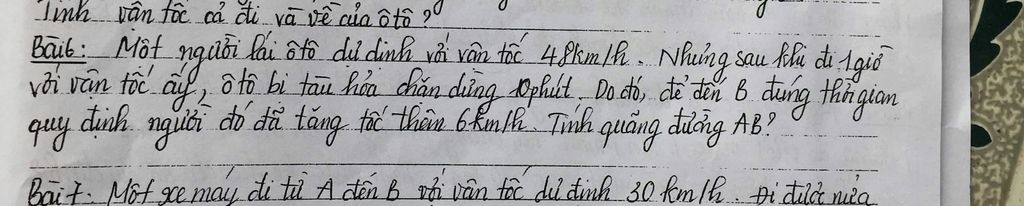 Tính vận tốc cả đi và về của ôtô?
Bài 6: Một người lái ôtô dự định với vận tốc 48km/h. Nhưng sau khi đi 1 giờ
với vận tốc ấy, ôtô bị tàu hỏa chắn đường 10 phút. Do đó, để đến B đúng thời gian
quy định người đó đã tăng tốc thêm 6km/h. Tính quãng đường AB?
Bài 7: Một xe máy đi từ A đến B với vận tốc dự định 30 km/h. Đi được nửa